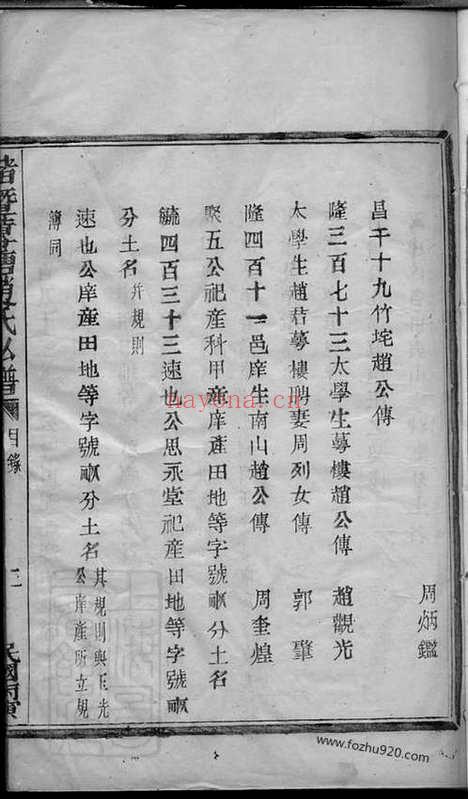 周炳鑑
昌千十九竹垞趙公傳
隆三百七十三太學生蕚樓趙公傳　趙觀光
太學生趙君蕚樓聘妻周列女傳　郭肇
隆四百十一邑庠生南山趙公傳　周奎煌
聚五公祀產科甲產庠產田地等字號畝分土名
毓四百三十三速也公思承堂祀產田地等字號畝
分土名并規則
速也公庠產田地等字號畝分土名其規則與玉光
公庠產所立規
簿同
趙氏公譜
目錄
三
民國丙寅
hayona.cn
www.fozhu920.com